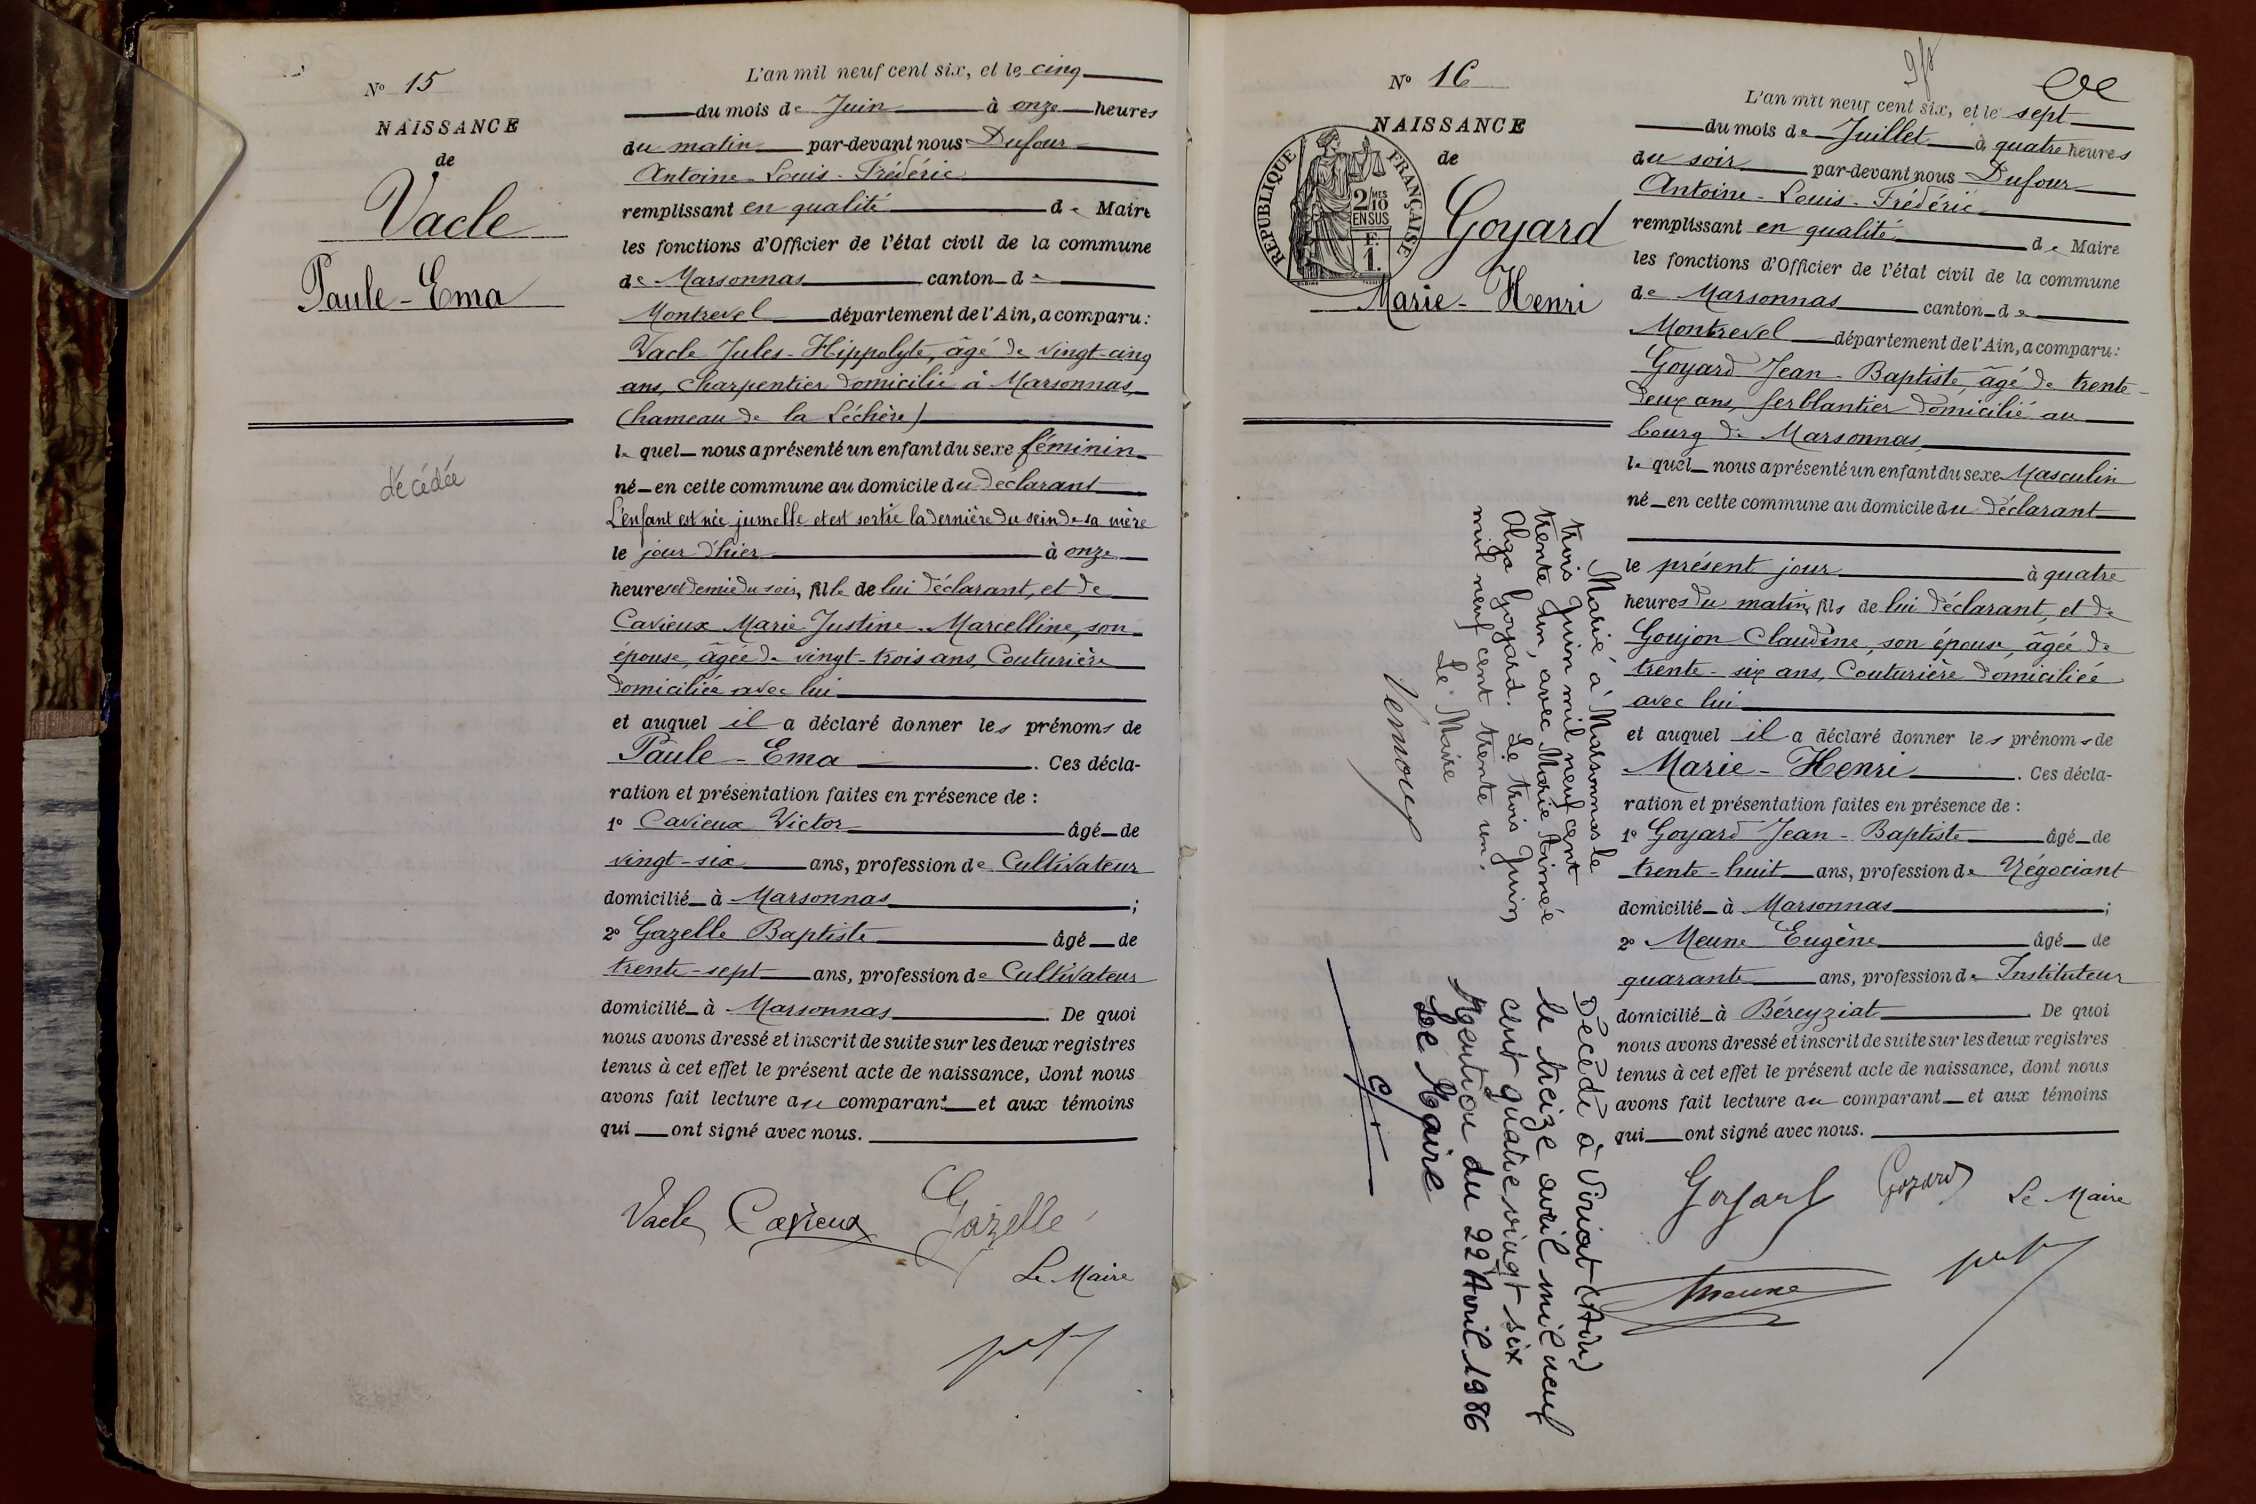 N° 15
NAISSANCE
de
Vacle
Paule-Ema
décédée
L'an mil neuf cent six, et le cinq
du mois de Juin à onze heures
du matin par-devant nous Dufour
Antoine-Louis-Frédéric
remplissant en qualité de Maire
les fonctions d'Officier de l'état civil de la commune
de Marsonnas canton de
Montrevel département de l'Ain, a comparu:
Vacle Jules-Hippolyte, âgé de vingt-cinq
ans, charpentier domicilié à Marsonnas,
(hameau de la Léchère)
lequel nous a présenté un enfant du sexe féminin
né en cette commune au domicile du déclarant
L'enfant est née jumelle et est sortie la dernière du sein de sa mère
le jour d'hier à onze
heures et demie du soir, fille de lui déclarant, et de
Cavieux Marie Justine Marcelline, son
épouse, âgée de vingt-trois ans, Couturière
domiciliée avec lui
et auquel il a déclaré donner les prénoms de
Paule-Ema. Ces décla-
ration et présentation faites en présence de :
1° Cavieux Victor âgé de
vingt-six ans, profession de Cultivateur
domicilié à Marsonnas ;
2° Gazelle Baptiste âgé de
trente-sept ans, profession de Cultivateur
domicilié à Marsonnas. De quoi
nous avons dressé et inscrit de suite sur les deux registres
tenus à cet effet le présent acte de naissance, dont nous
avons fait lecture au comparant et aux témoins
qui ont signé avec nous.
Vacle Cavieux Gazelle
Le Maire
N° 16
NAISSANCE
de
Goyard
Marie-Henri
REPUBLIQUE FRANÇAISE
2 MES
10
EN SUS
F.
1.
L'an mil neuf cent six, et le sept
du mois de Juillet à quatre heures
du soir par-devant nous Dufour
Antoine-Louis-Frédéric
remplissant en qualité de Maire
les fonctions d'Officier de l'état civil de la commune
de Marsonnas canton de
Montrevel département de l'Ain, a comparu:
Goyard Jean-Baptiste, âgé de trente-
deux ans, ferblantier domicilié au
bourg de Marsonnas,
lequel nous a présenté un enfant du sexe Masculin
né en cette commune au domicile du déclarant
le présent jour à quatre
heures du matin, fils de lui déclarant, et de
Goujon Claudine, son épouse, âgée de
trente-six ans, Couturière domiciliée
avec lui
et auquel il a déclaré donner les prénoms de
Marie-Henri. Ces décla-
ration et présentation faites en présence de :
1° Goyard Jean-Baptiste âgé de
trente-huit ans, profession de Négociant
domicilié à Marsonnas ;
2° Meune Eugène âgé de
quarante ans, profession de Instituteur
domicilié à Béreyziat. De quoi
nous avons dressé et inscrit de suite sur les deux registres
tenus à cet effet le présent acte de naissance, dont nous
avons fait lecture au comparant et aux témoins
qui ont signé avec nous.
Goyard Goyard Le Maire
Meune
Marié à Marsonnas le
trois Juin mil neuf cent
trente un, avec Marie Aimée
Olga Goyard. Le trois Juin
mil neuf cent trente un.
Le Maire
Décédé à Viriat (Ain)
le treize avril mil neuf
cent quatre vingt six
Mention du 22 Avril 1986
Le Maire